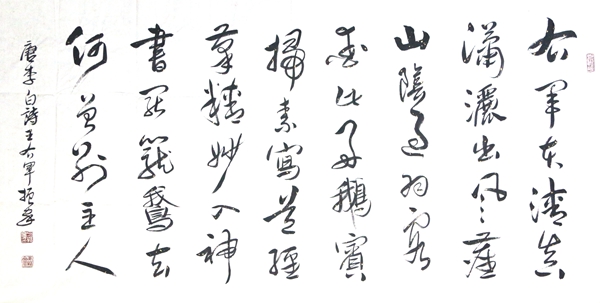 右軍本清真
瀟灑出風塵
山陰過羽客
愛此好鵝賓
掃素寫道經
筆精妙入神
書罷籠鵝去
何曾別主人
唐李白詩王右軍